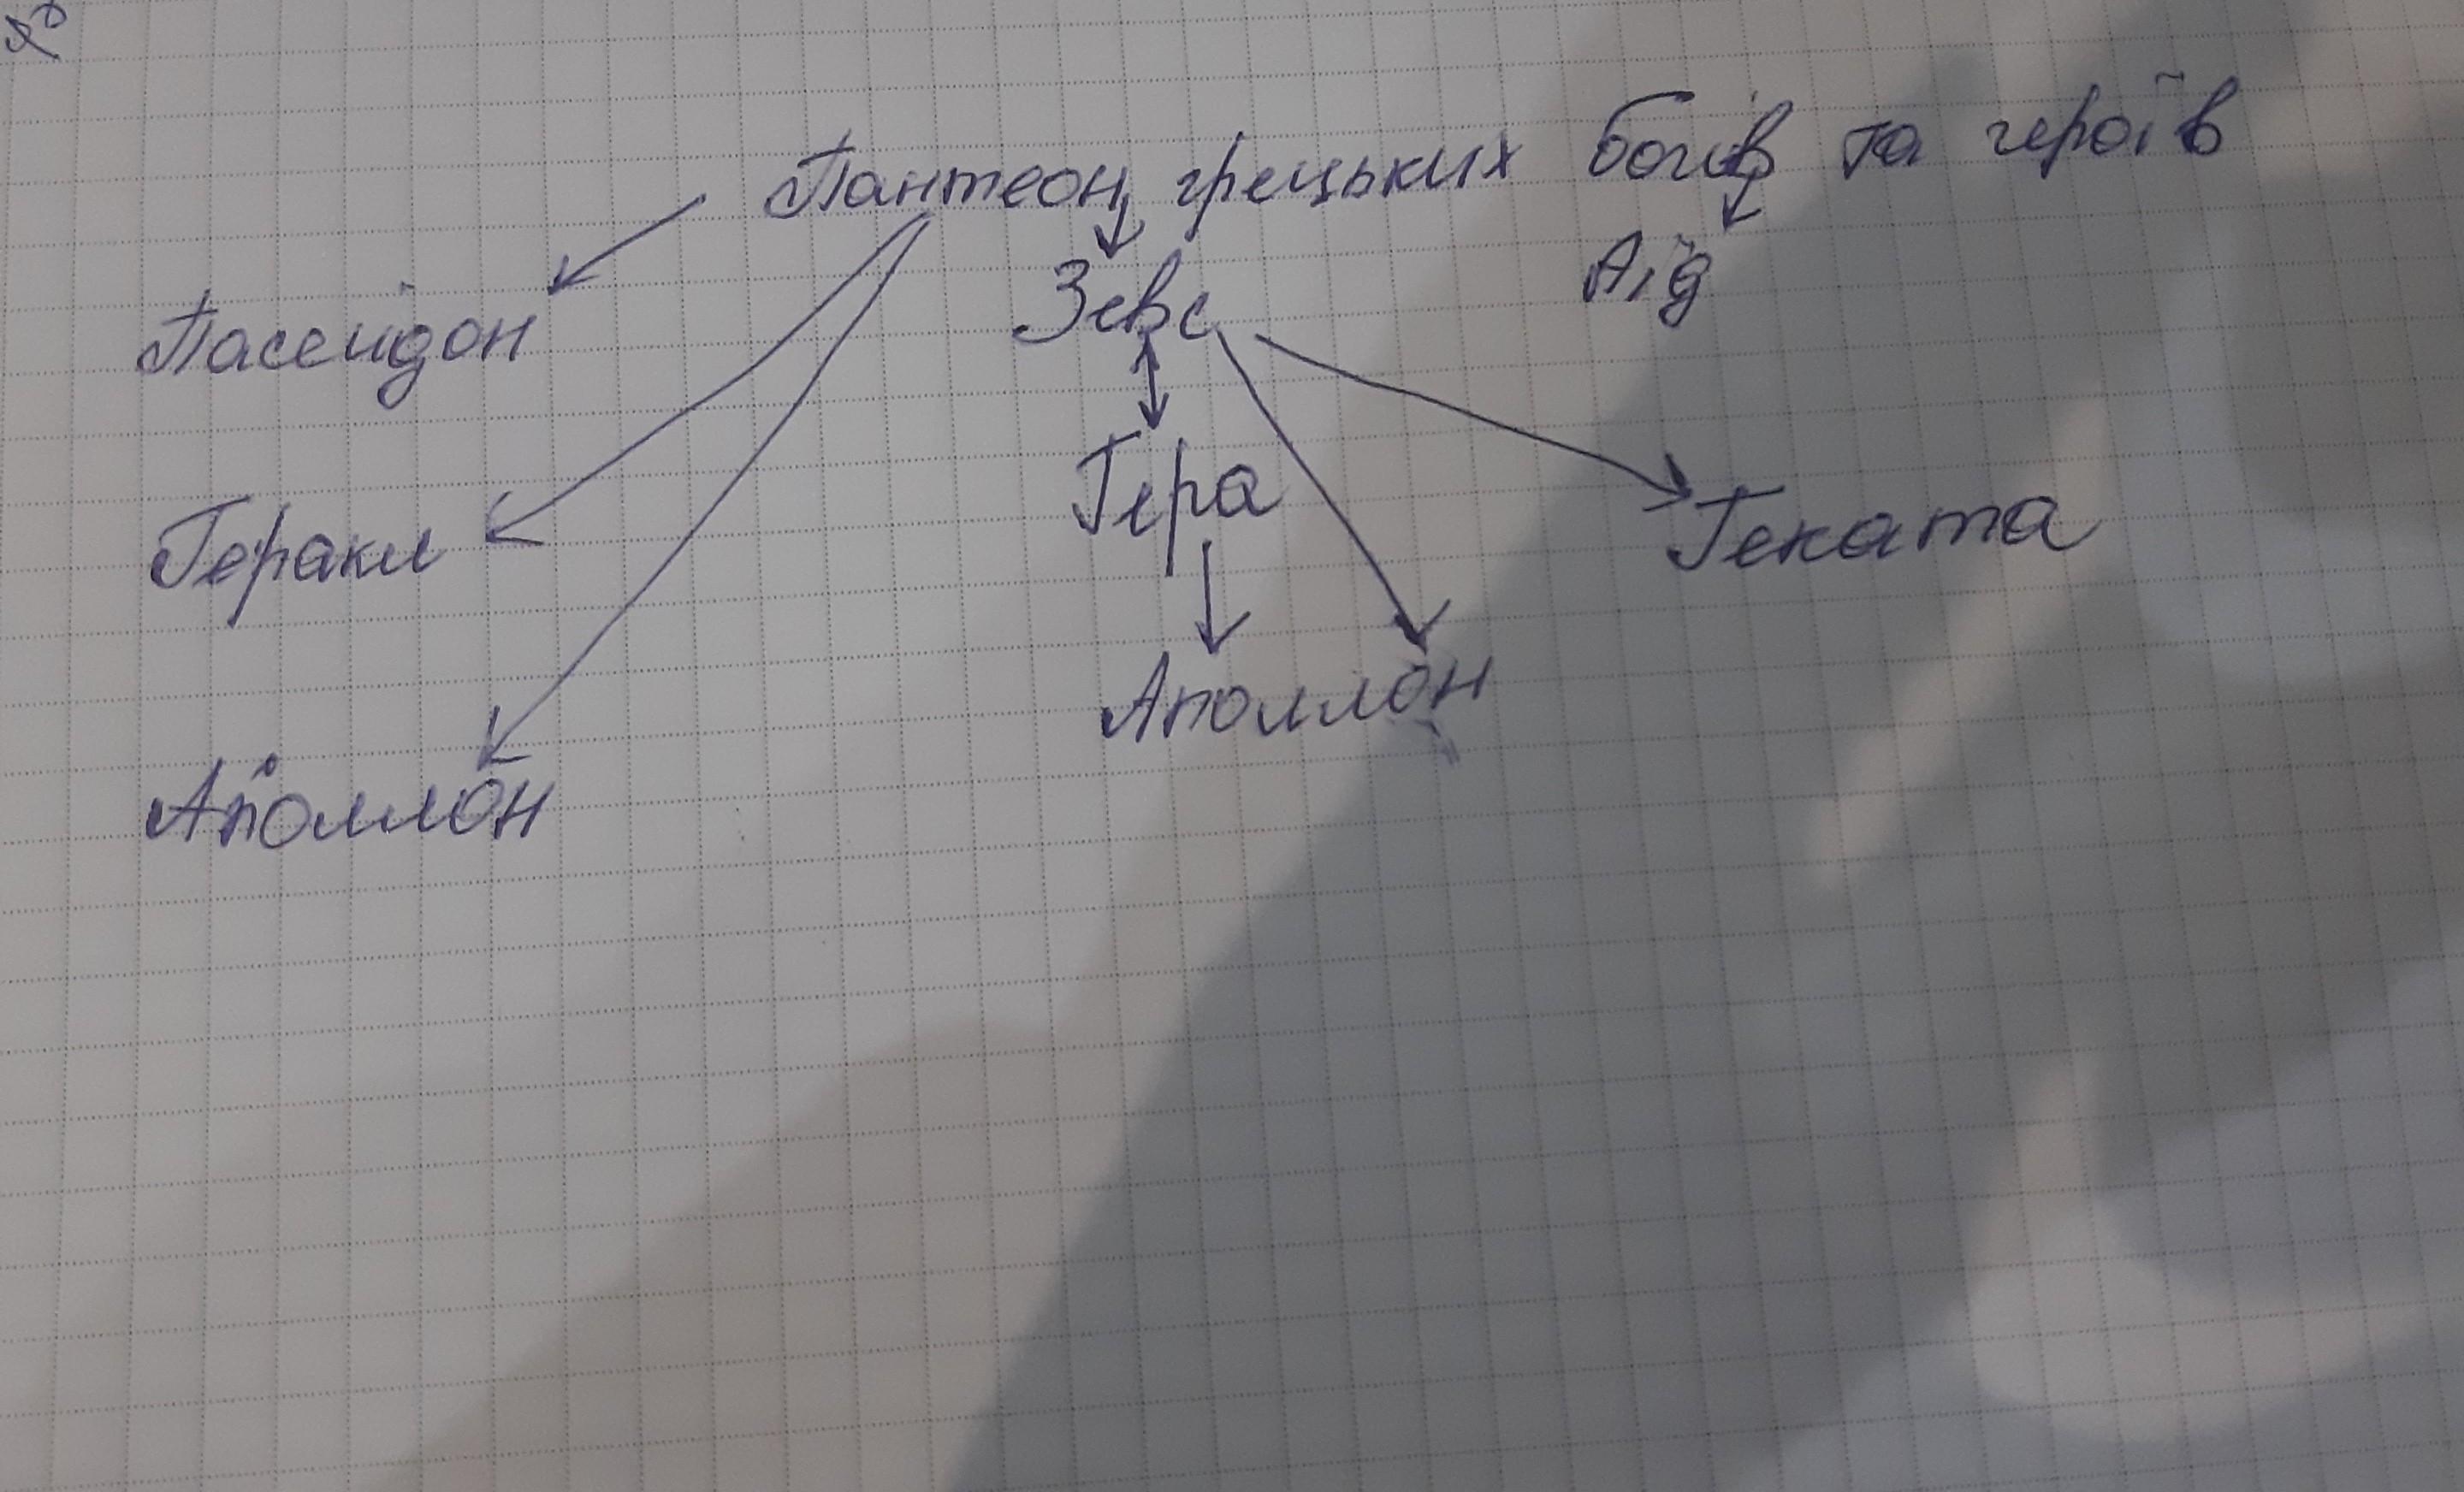 Пантеон грецьких богів та героїв
Пасейдон
Зевс
Аїд
Геракл
Гера
Геката
Аполлон
Аполлон